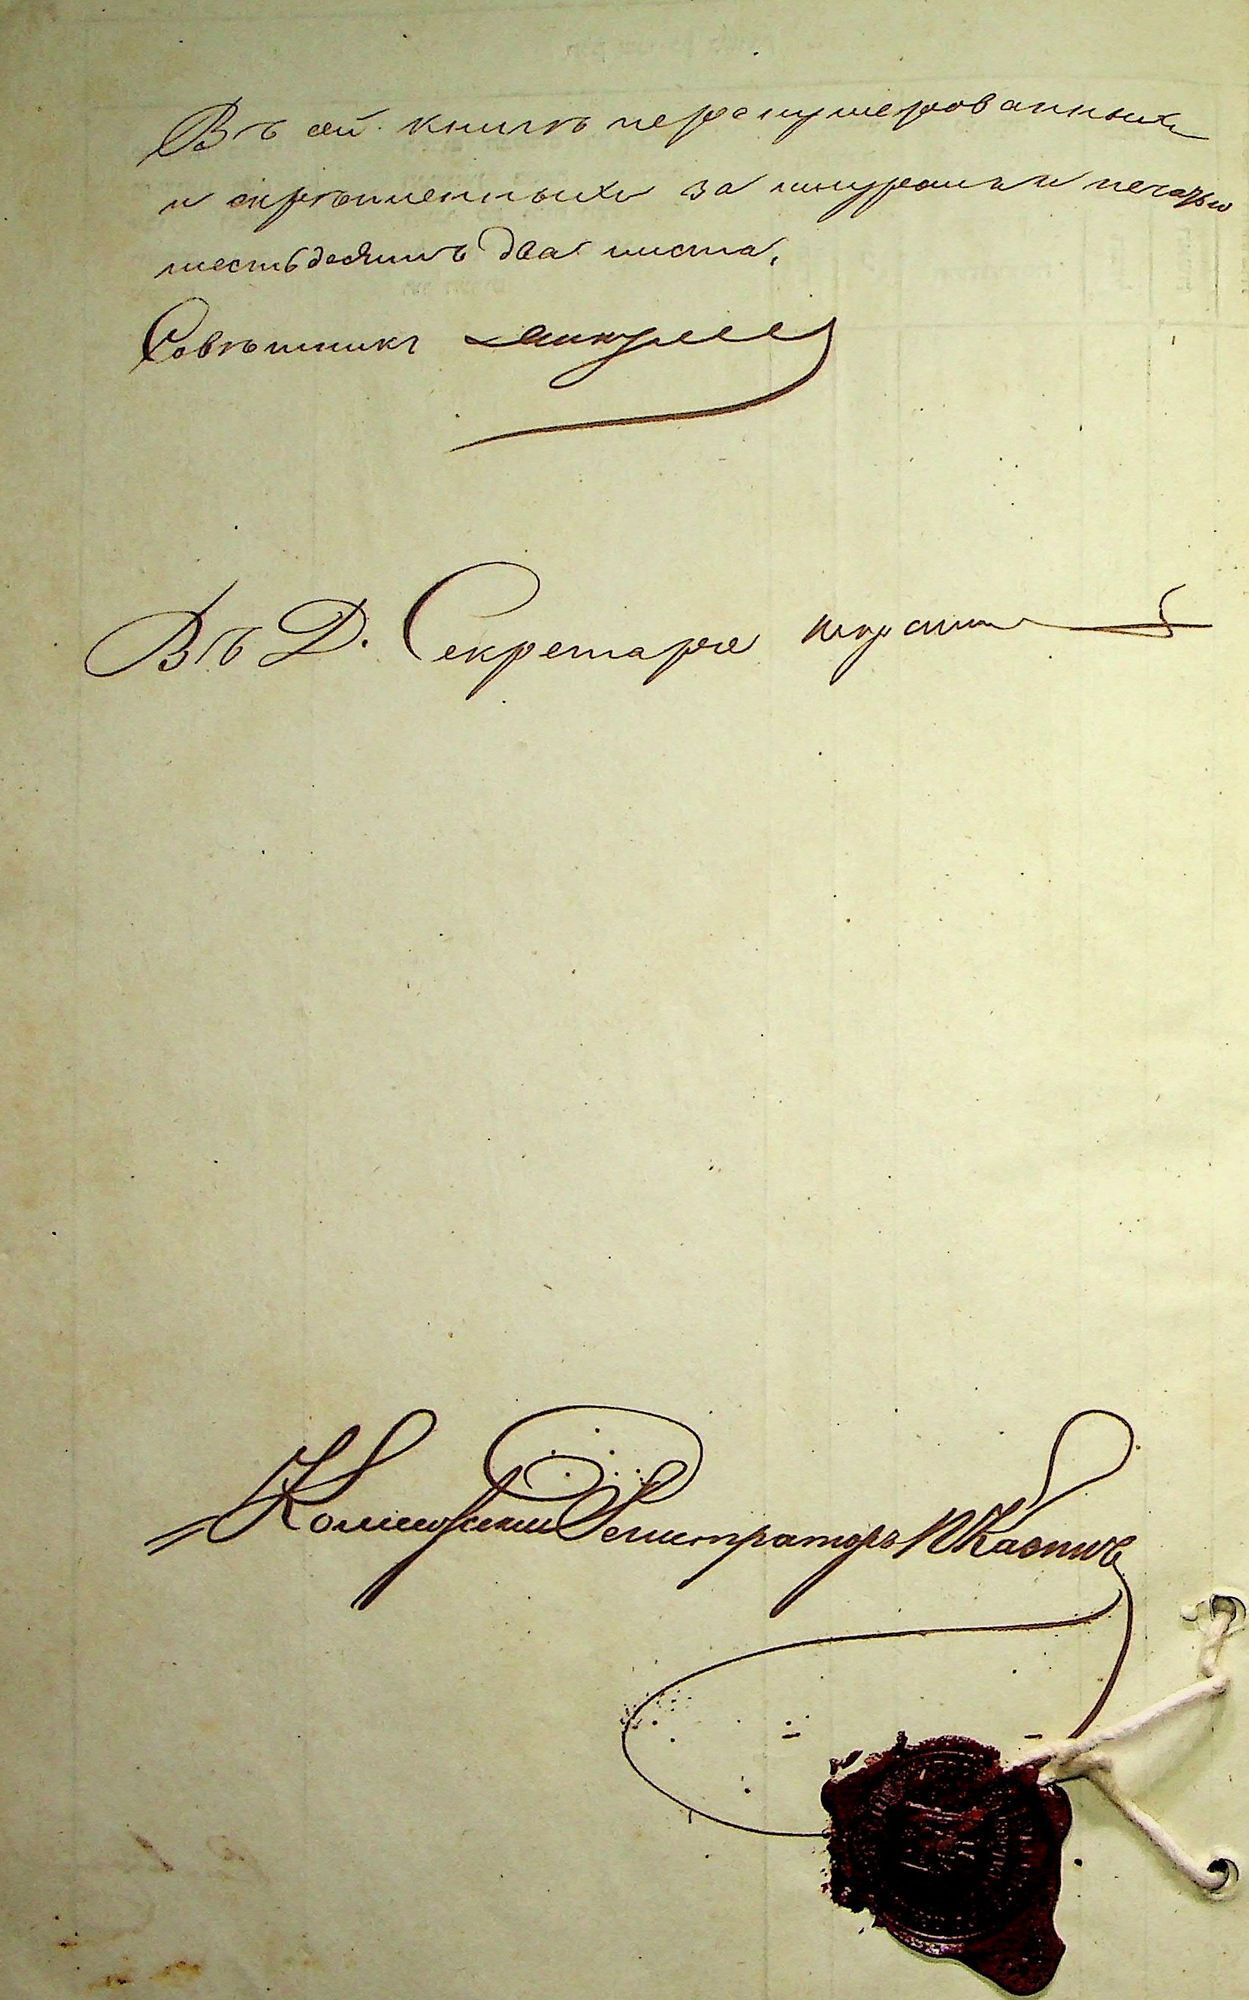 Въ сей книгѣ перенумерованныхъ
и скрѣпленныхъ за шнуромъ и печатью
шестьдесятъ два листа,
Совѣтникъ
Въ Д. Секретаря
Коллежскій Регистраторъ